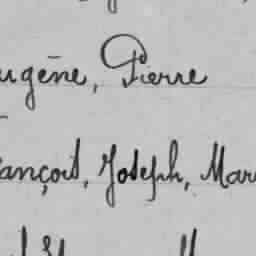 ugène, Pierre
ançois, Joseph, Mar